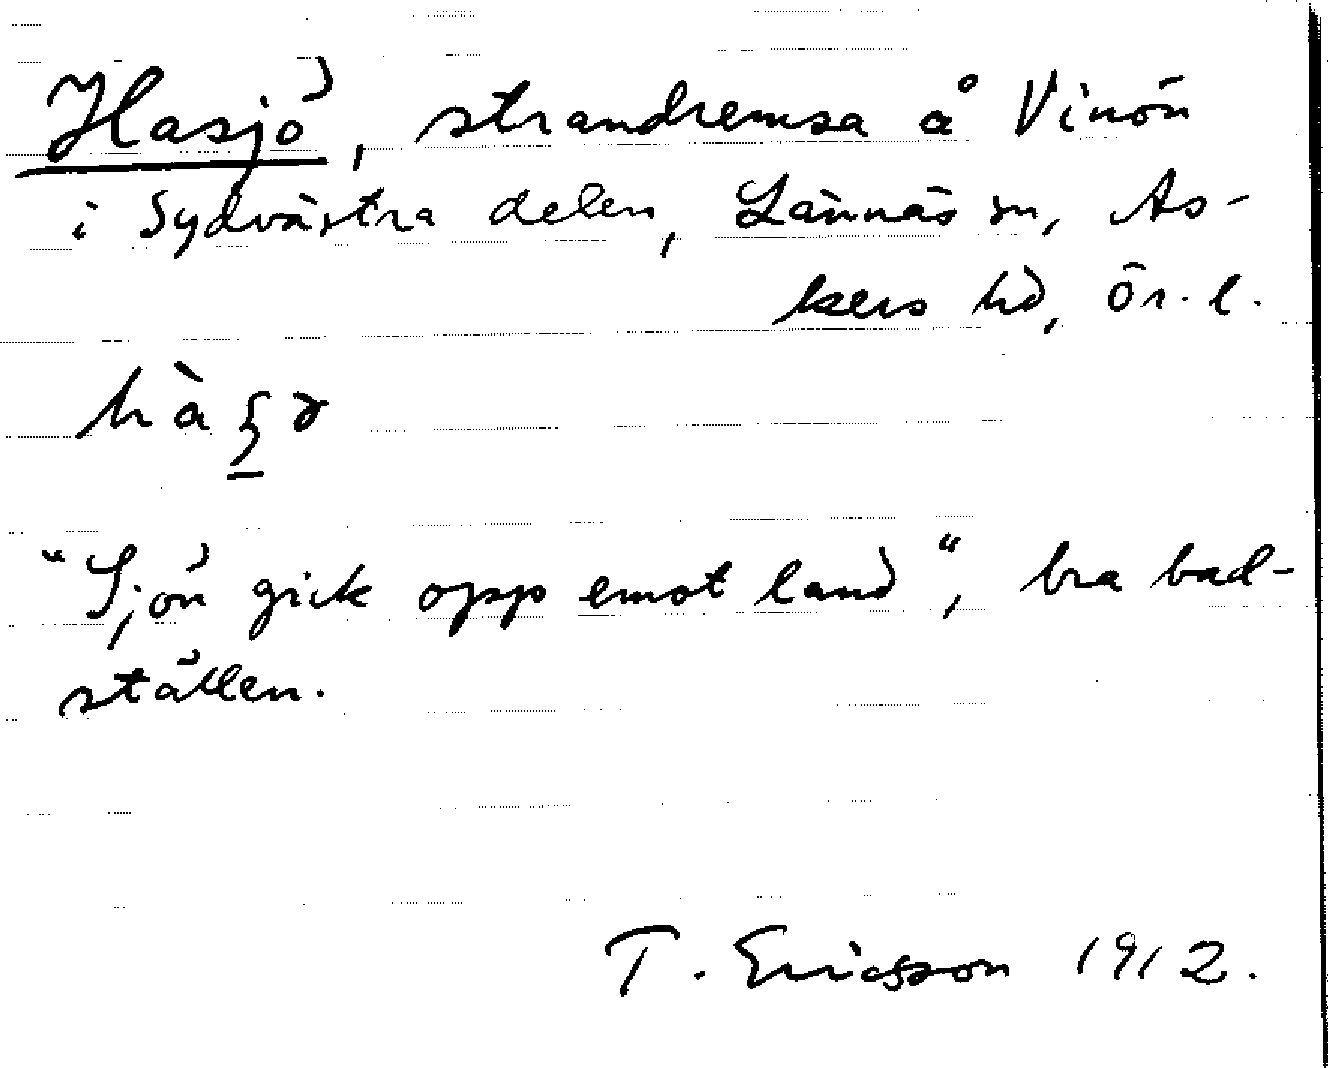 Hasjö, strandremsa å Vinön
i Sydvästra delen, Lännäs sn, As-
kers hd, Ör. l.
"Sjön gick opp emot land", bra bad-
ställen.
T. Ericsson 1912.